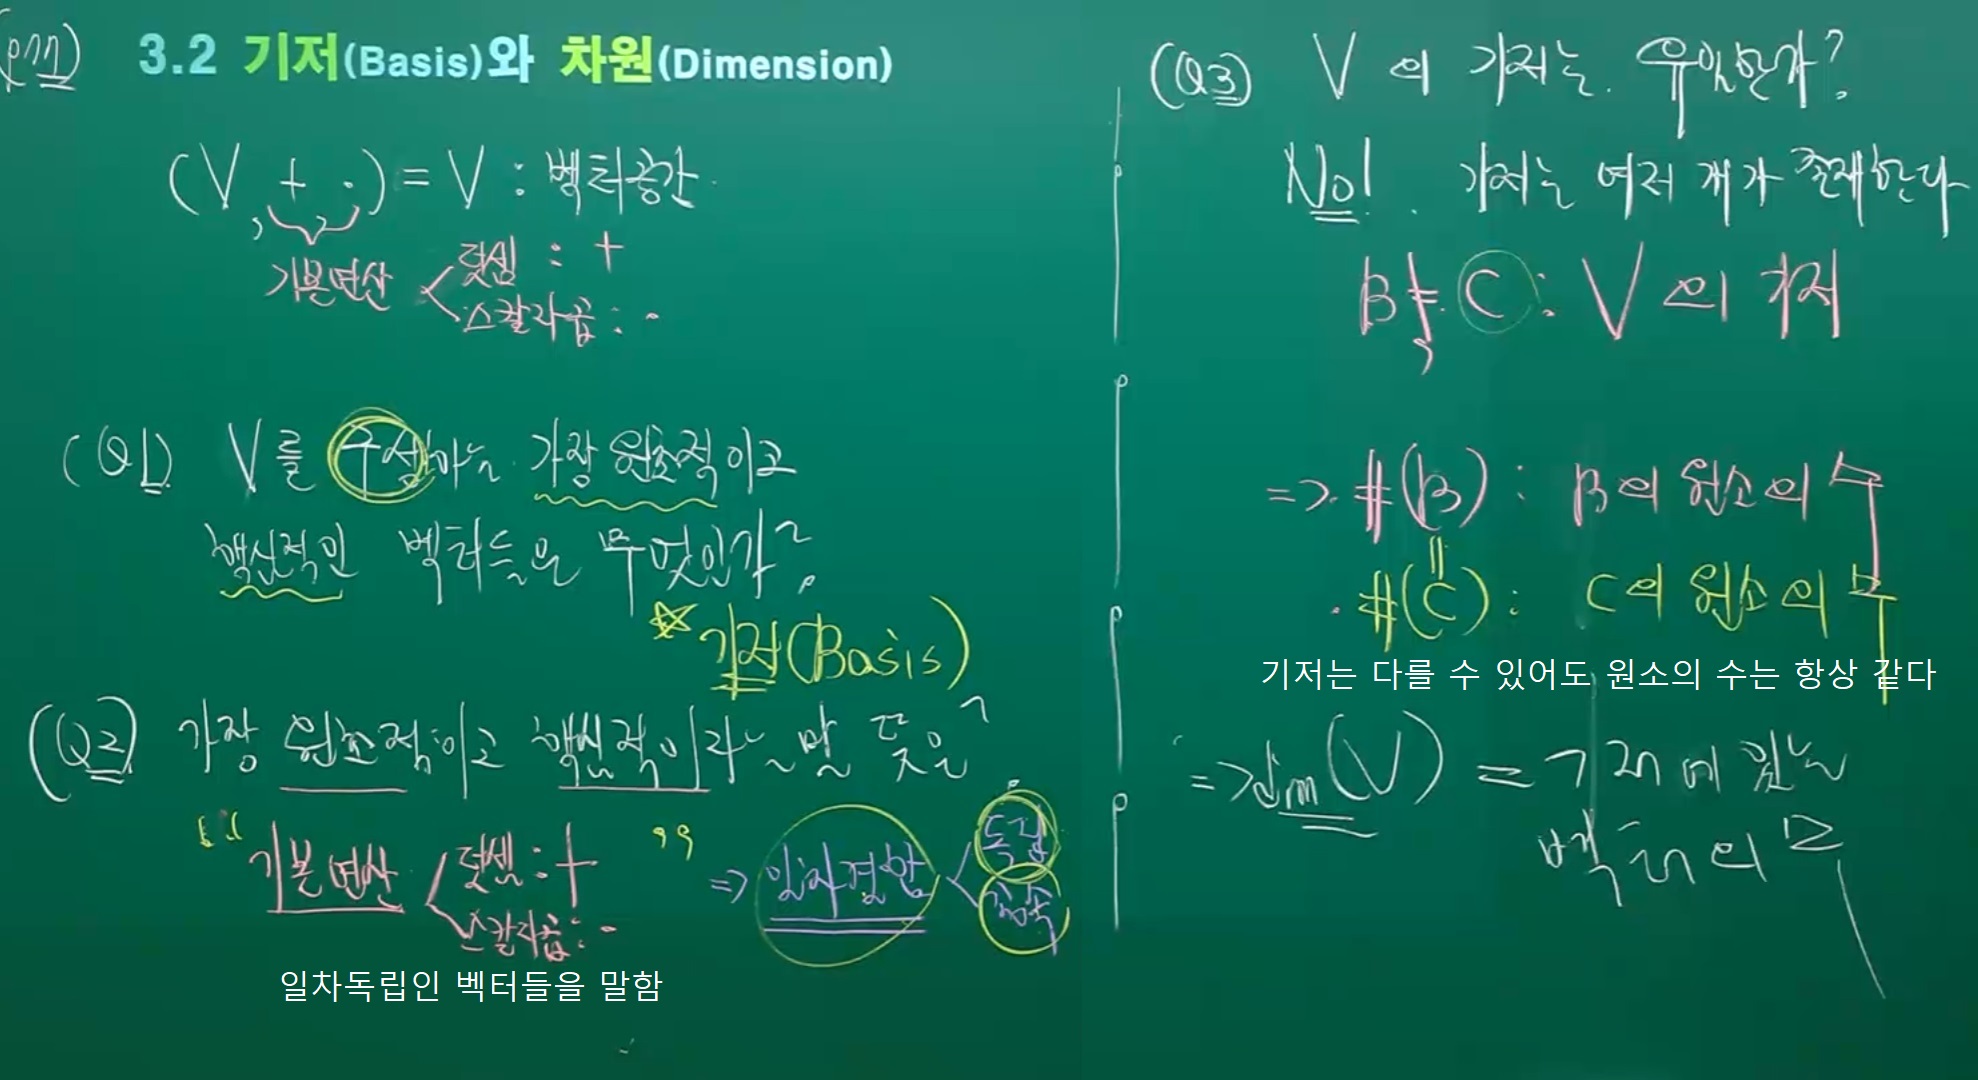 3.2 기저(Basis)와 차원(Dimension)
(V, + , ·) = V : 벡터공간
기본연산 < 덧셈 : +
스칼라곱 : ·
(Q1) V를 구성하는 가장 원초적이고
핵심적인 벡터들은 무엇인가?
☆ 기저(Basis)
(Q2) 가장 원초적이고 핵심적이라는 말 뜻은?
"기본연산 < 덧셈 : + "
스칼라곱 : ·
=> 일차결합 < 독립
종속
일차독립인 벡터들을 말함
(Q3) V의 기저는 유일한가?
No! 기저는 여러 개가 존재한다
B ≠ C : V의 기저
=> #(B) : B의 원소의 수
||
#(C) : C의 원소의 수
기저는 다를 수 있어도 원소의 수는 항상 같다
=> dim(V) = 기저에 있는
벡터의 수